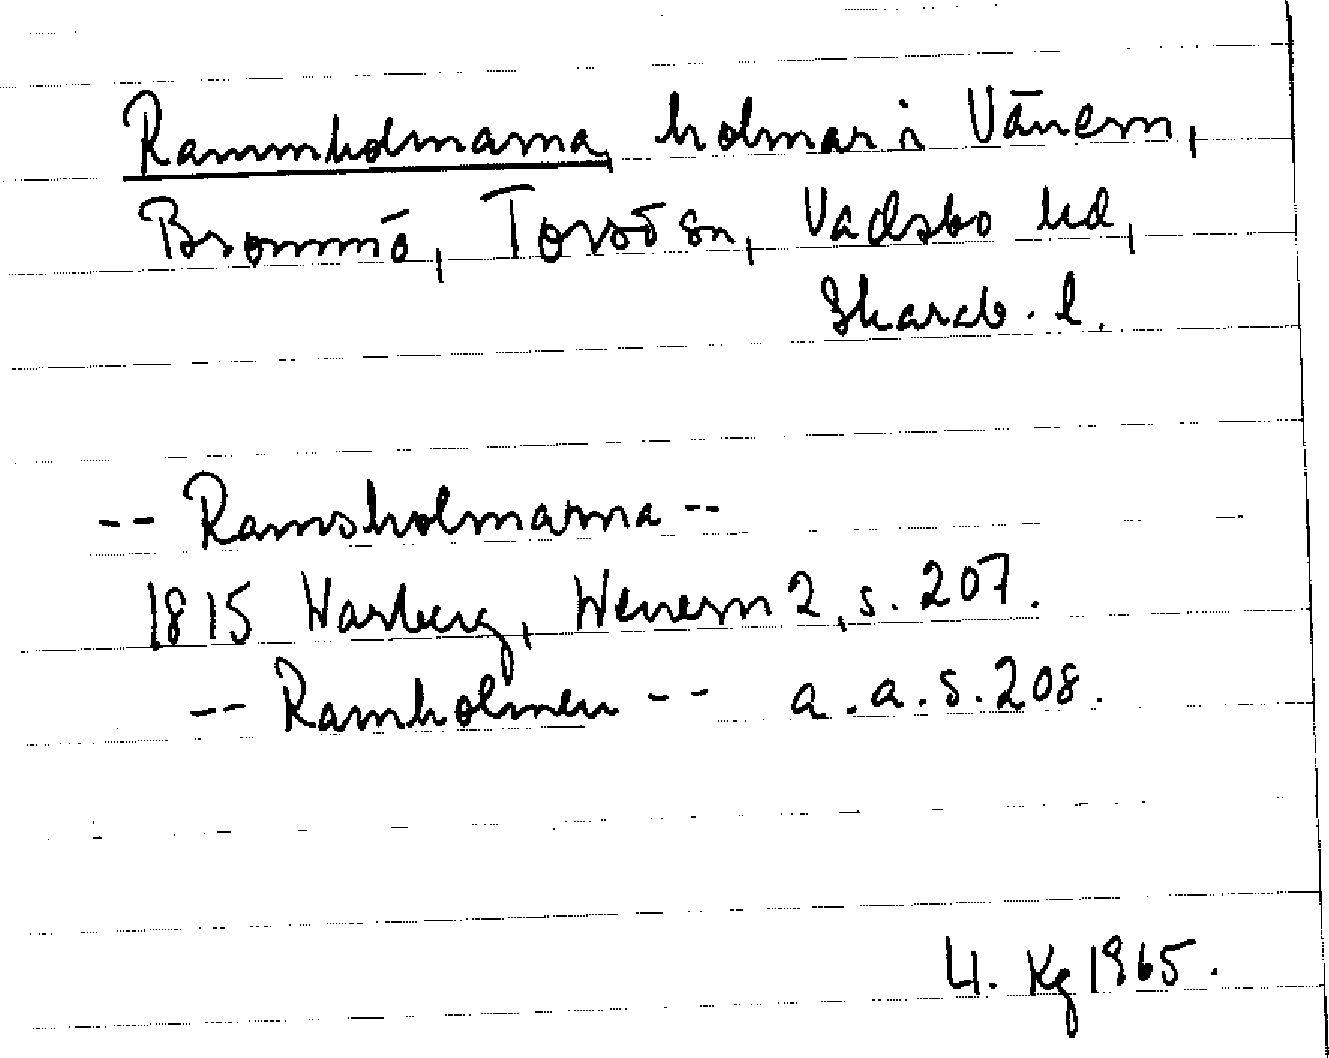 Rammholmarna, holmar i Vänern,
Brommö, Torsö sn, Vadsbo hd,
Skarab. l.
-- Ramsholmarna --
1815 Warberg, Wenern 2, s. 207.
-- Ramholmen -- a.a.s. 208.
Kg 1965.